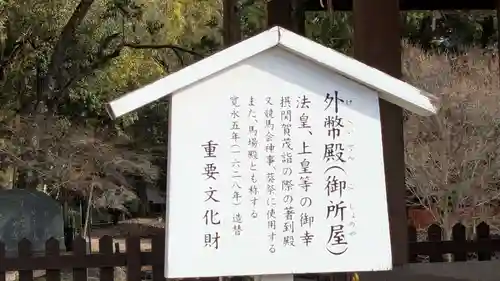 外幣殿(御所屋)
げへいでん ごしょのや
法皇、上皇等の御幸
摂関賀茂詣の際の著到殿
又競馬会神事、葵祭に使用する
また、馬場殿とも称する
寛永五年(一六二八年)造替
重要文化財